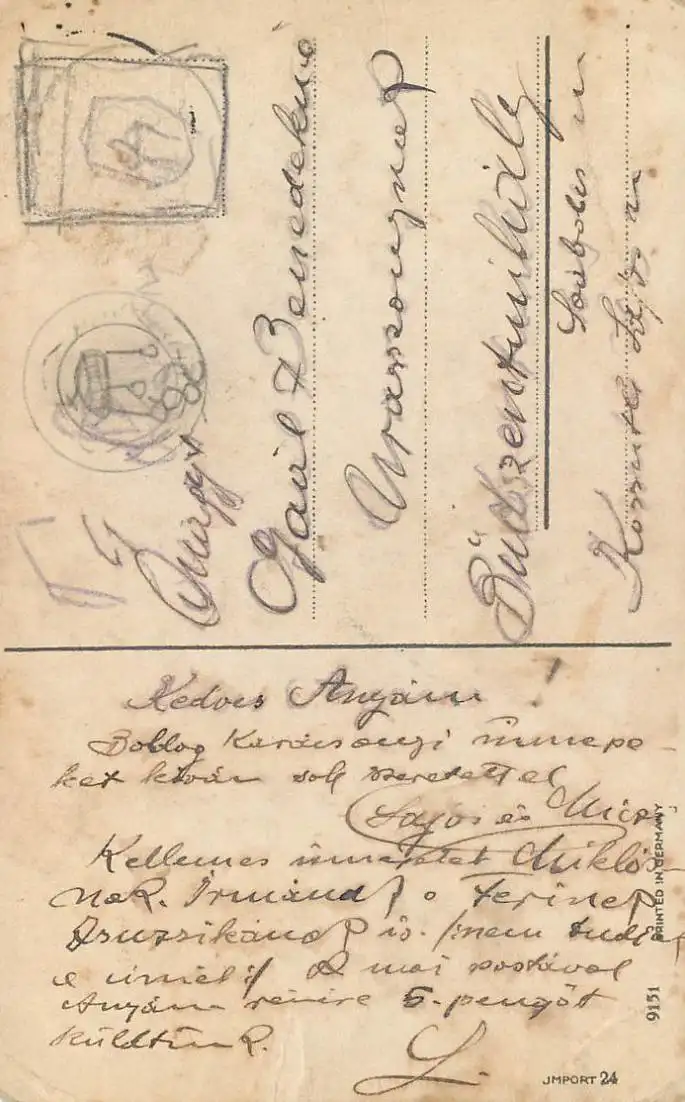 Gaál Benedekné
Úrasszonynak
Büdszentmihály
Szabolcs m
Kossuth Lajos u
Kedves Anyám!
Boldog Karácsonyi ünnepe-
ket kiván sok szeretettel
Lajos és Mici
Kellemes ünnepeket Miklós-
nak. Irmának Ferinek
Zsuzsikának is.
a mai postával
Anyám részire 5.-pengőt
küldtünk.
L.
PRINTED IN GERMANY
9151
JMPORT 24